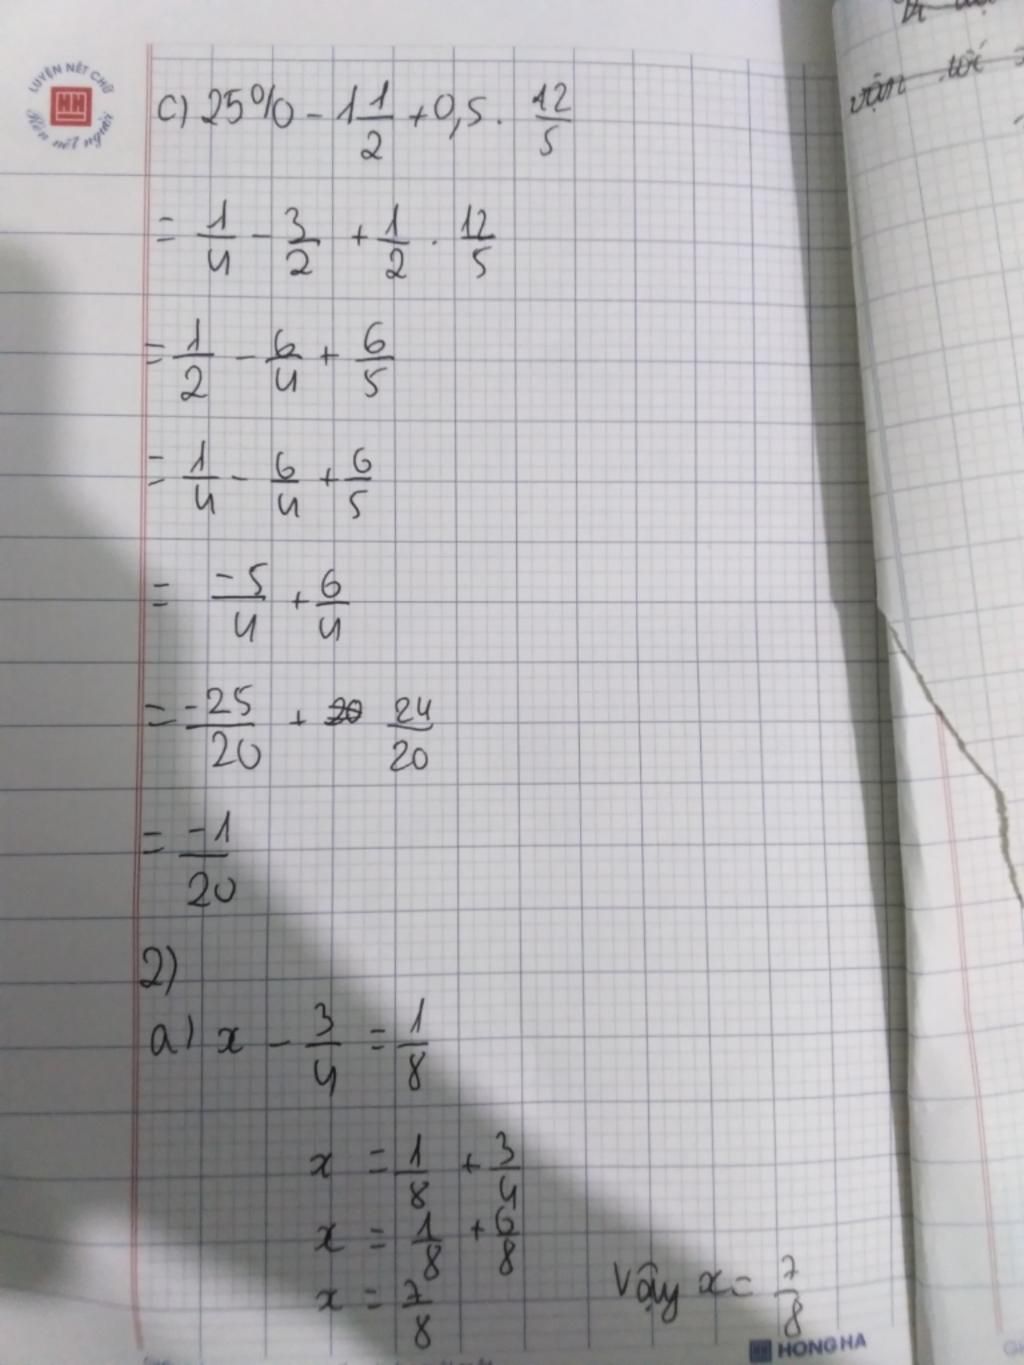 LUYỆN NÉT CHỮ
HH
Rèn nết người
c) 25% - 1 1/2 + 0,5 . 12/5
= 1/4 - 3/2 + 1/2 . 12/5
= 1/2 - 6/4 + 6/5
= 1/4 - 6/4 + 6/5
= -5/4 + 6/4
= -25/20 + 20 24/20
= -1/20
2)
a) x - 3/4 = 1/8
x = 1/8 + 3/4
x = 1/8 + 6/8
x = 7/8
Vậy x = 7/8
HH HONG HA
vận tốc